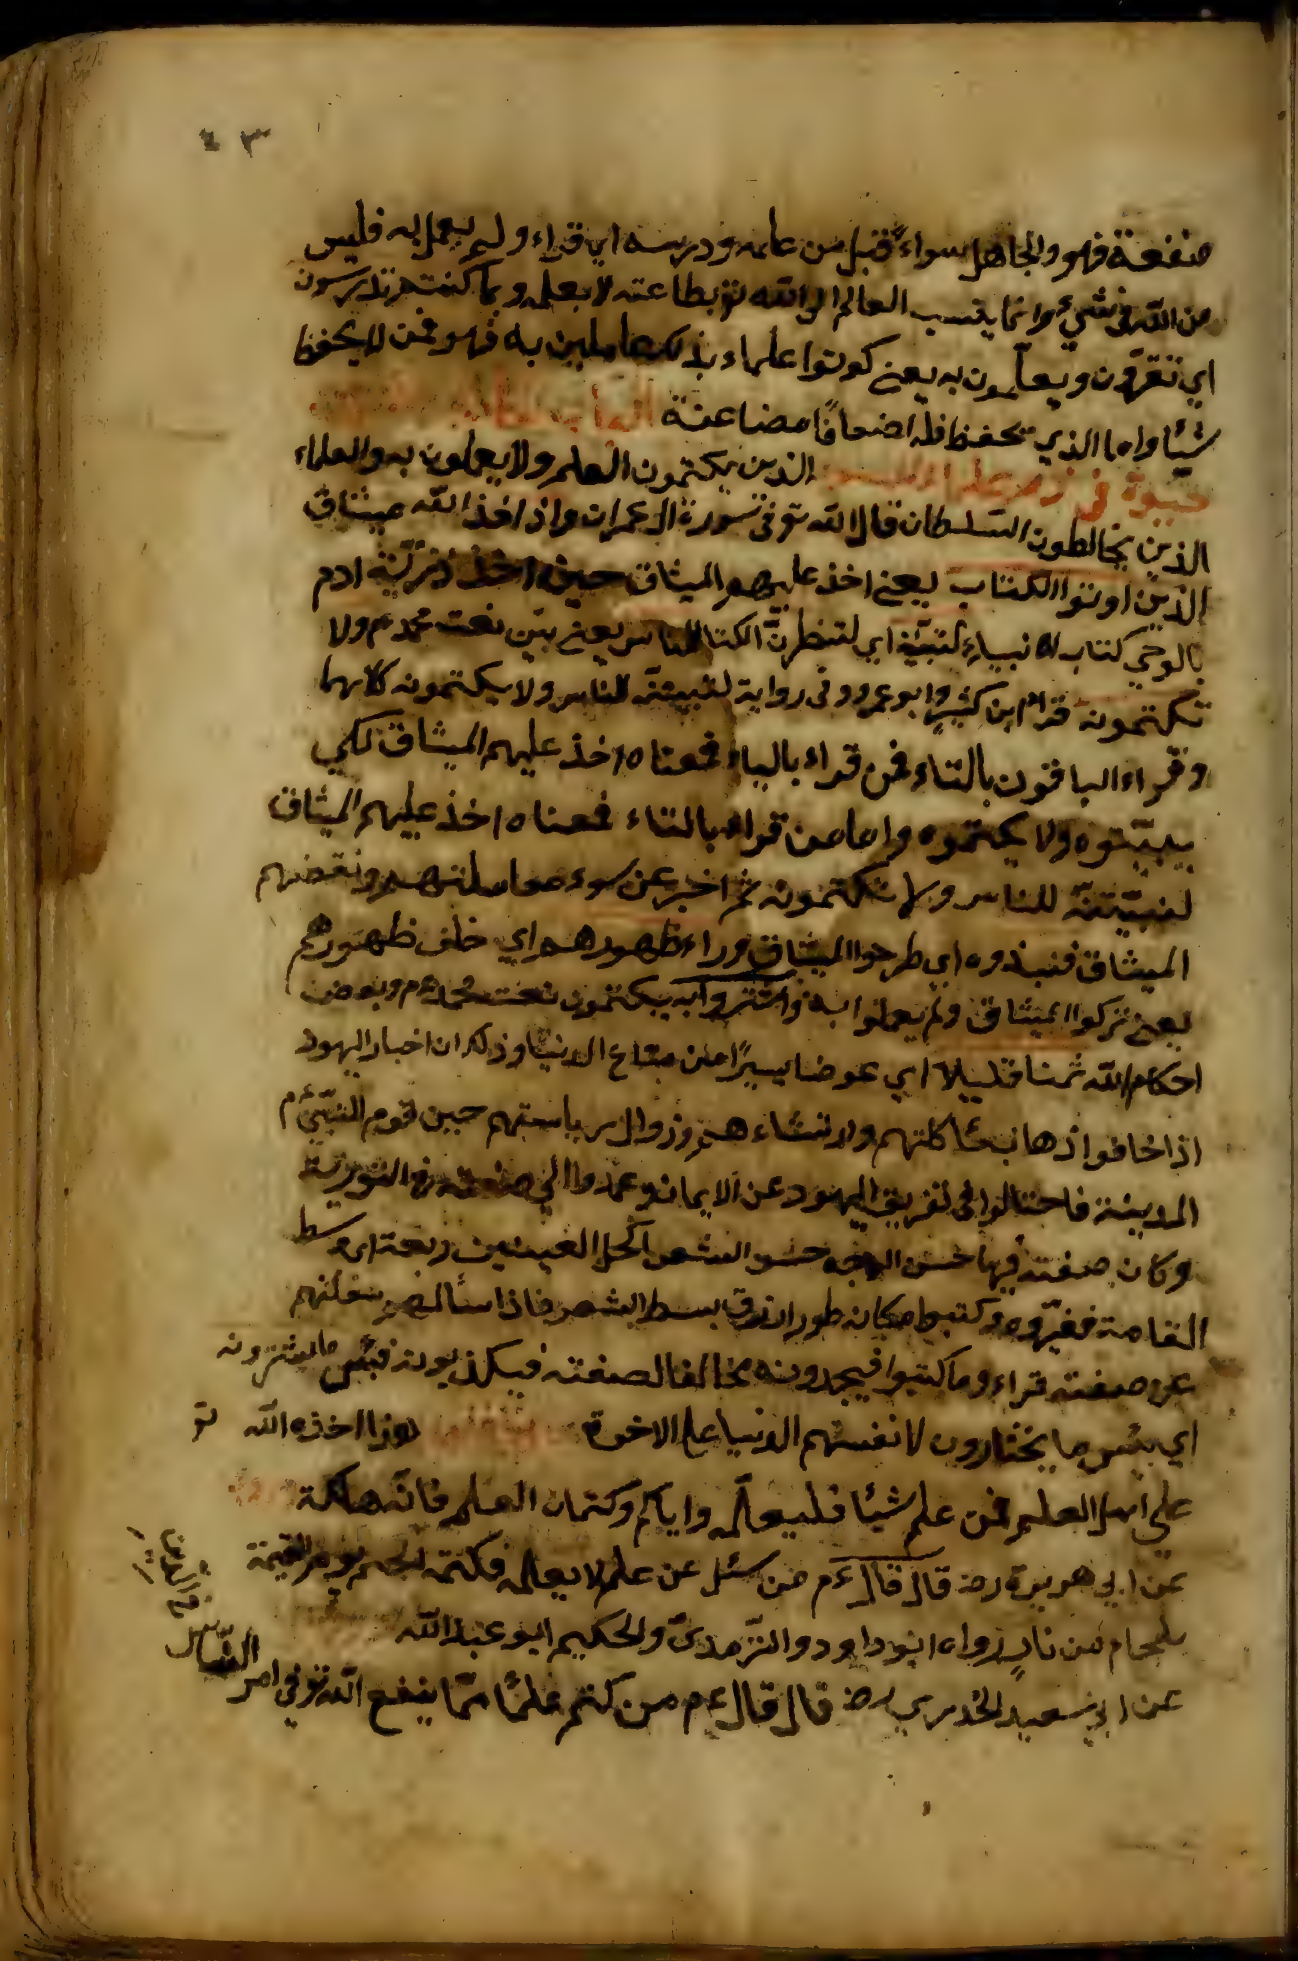 ٤٣
منفعة فهو والجاهل سواء فتبل من علمه ودرسه اي قراء ولم يعمل به فليس
من الله في شيء وانما ينسب العالم الى الله تو بطاعته لا بعلمه وبما كنتم تدرسون
اي تقرؤن ويعلمون به يعني كونوا علماء بذلك عاملين به فهو فمن لا يحفظ
شيئا واما الذي يحفظ فله اضعافا مضاعفة
في ذم علماء السوء الذين يكتمون العلم ولا يعملون به والعلماء
الذين يخالطون السلطان قال الله تو في سورة ال عمران واذ اخذ الله ميثاق
الذين اوتوا الكتاب يعني اخذ عليهم الميثاق حين اخذ ذرية ادم
بالوحي كتاب الانبياء لتبيننه اي لتظهرن الكتاب للناس يعني بين نعت محمد م ولا
تكتمونه قراء ابن كثير وابو عمرو وفي رواية لتبيننه للناس ولا يكتمونه كلاهما
وقراء الباقون بالتاء فمن قراء بالياء فمعناه اخذ عليهم الميثاق لكي
يبينوه ولا يكتموه واما من قراء بالتاء فمعناه اخذ عليهم الميثاق
لتبيننه للناس ولا تكتمونه ثم اخبر عن سوء معاملتهم ونقضهم
الميثاق فنبذوه اي طرحوا الميثاق وراء ظهورهم اي خلف ظهورهم
يعني تركوا الميثاق ولم يعملوا به واشتروا به يكتمون نعت محمد م وبعض
احكام الله ثمنا قليلا اي عوضا يسيرا من متاع الدنيا وذلك ان احبار اليهود
اذا خافوا ذهاب مأكلتهم وزوال رياستهم حين قوم النبي م
المدينة فاحتالوا في تفريق اليهود عن الايمان وعمدوا الي صفته في التورية
وكان صفته فيها حسن الوجه حسن الشعر اكحل العينين ربعة اي وسط
القامة فغيروه وكتبوا مكانه طور ازرق بسط الشعر فاذا سألهم سفلتهم
عن صفته قراء وما كتبوا فيجدونه مخالفا لصفته فيكذبونه فبئس ما يشترونه
اي بئس ما يختارون لانفسهم الدنيا على الاخرة هذا اخذه الله تو
على اهل العلم فمن علم شيئا فليعلمه واياكم وكتمان العلم فانه هلكة
عن ابي هريرة رض قال قال عم من سئل عن علم لا يعلمه فكتمه الجم يوم القيمة
بلجام من نار رواه ابو داود والترمدي والحكيم ابو عبد الله
عن ابي سعيد الخدري رض قال قال عم من كتم علما مما ينفع الله تو في امر الناس